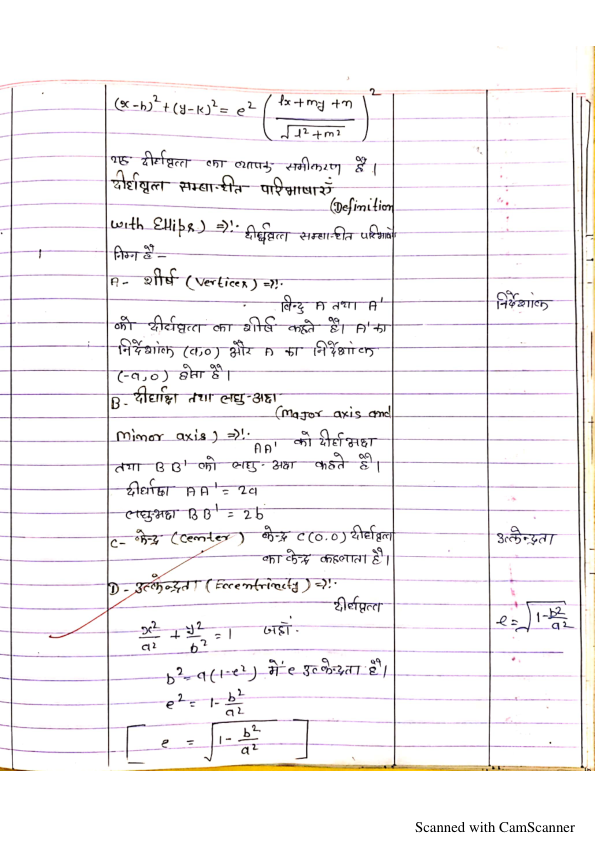 (x-h)²+(y-k)² = e² ( lx+my+n / √l²+m² )²
यह दीर्घवृत्त का व्यापक समीकरण है।
दीर्घवृत्त सम्बन्धित परिभाषाएँ
(Definition
with Ellips) =>!· दीर्घवृत्त सम्बन्धित परिभाषाएं
1
निम्न है –
A- शीर्ष (Vertices) =>!·
बिन्दु A तथा A'
निर्देशांक
को दीर्घवृत्त का शीर्ष कहते है। A' का
निर्देशांक (a,0) और A का निर्देशांक
(-a,0) होता है।
B- दीर्घाक्ष तथा लघु-अक्ष
(Major axis and
Minor axis) =>!·
AA' को दीर्घ अक्ष
तथा BB' को लघु-अक्ष कहते है।
दीर्घाक्ष AA' = 2a
लघुअक्ष BB' = 2b
C- केन्द्र (Center) केन्द्र C(0.0) दीर्घवृत्त
उत्केन्द्रता
का केन्द्र कहलाता है।
D- उत्केन्द्रता (Eccentricity) =>!·
दीर्घवृत्त
e = √1-b²/a²
x²/a² + y²/b² = 1 जहाँ
b² = a(1-e²) में e उत्केन्द्रता है।
e² = 1- b²/a²
[ e = √1- b²/a² ]
Scanned with CamScanner